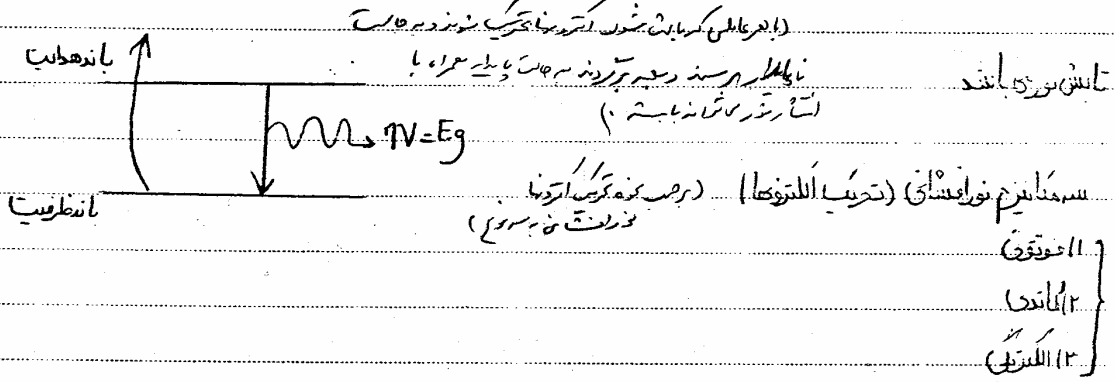 (با هر عاملی که باعث شود الکترونها تحریک شوند و به حالت
ناپایدار برسند و بعد برگردند به حالت پایدار همراه با
انتشار نوری می‌تواند باشد.)
تابش نوری باشد
باند هدایت
ηV=Eg
باند ظرفیت
سه مکانیزم نورافشانی (تحریک الکترونها) (برحسب نحوه تحریک الکترونها
نورافشانی به سه نوع)
۱) فوتونی
۲) کاتدی
۳) الکتریکی